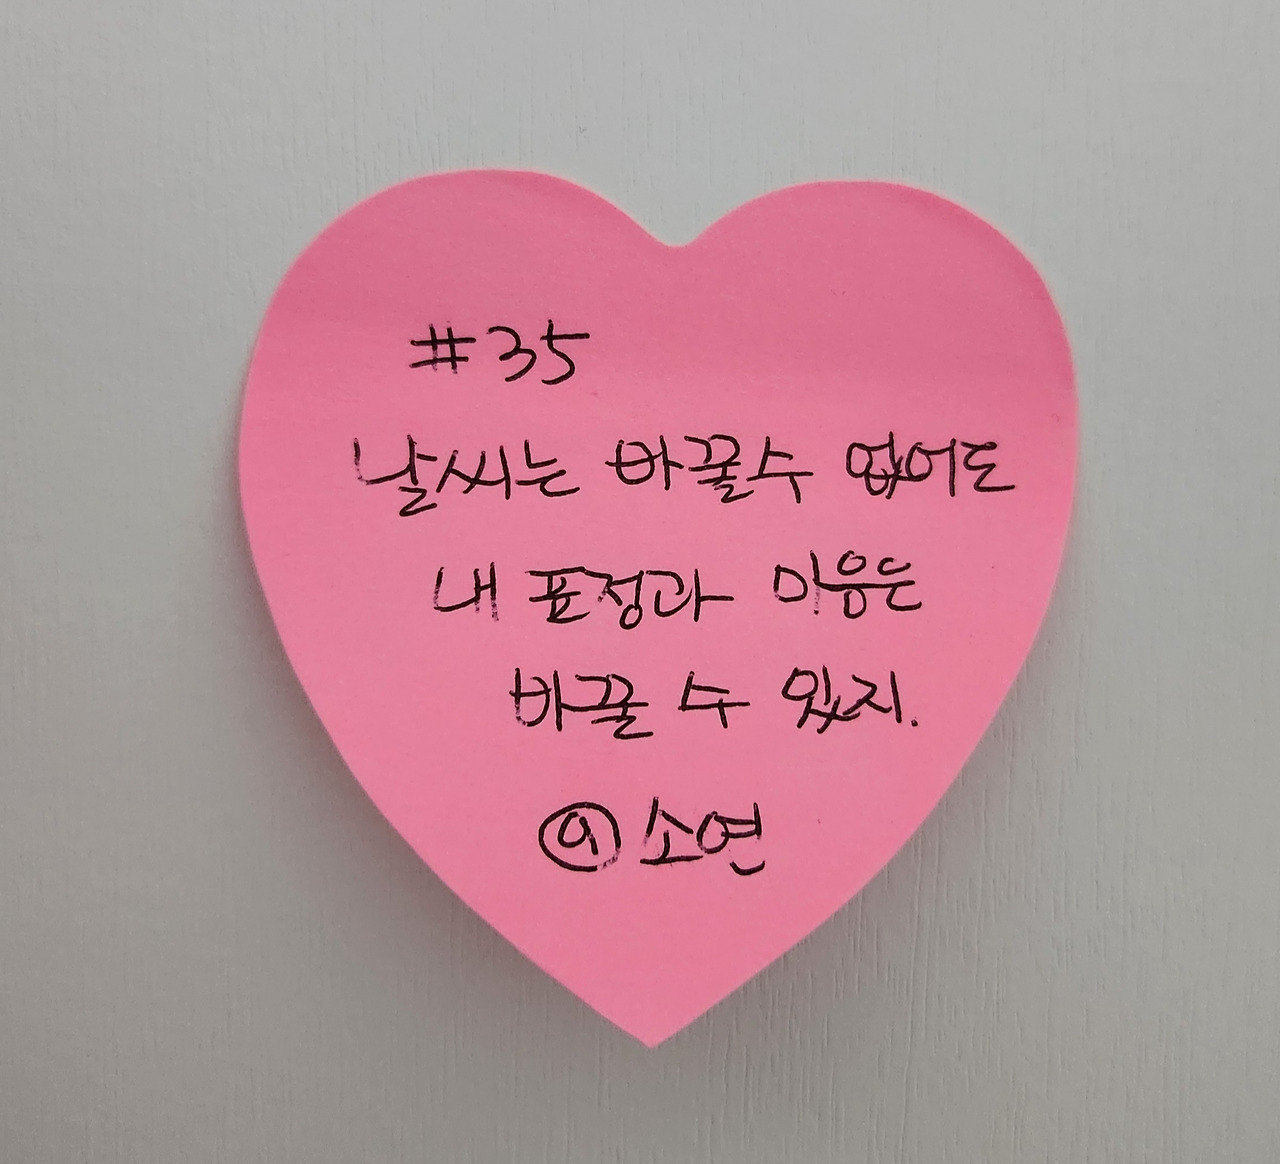 #35
날씨는 바꿀수 없어도
내 표정과 마음은
바꿀 수 있지.
소연